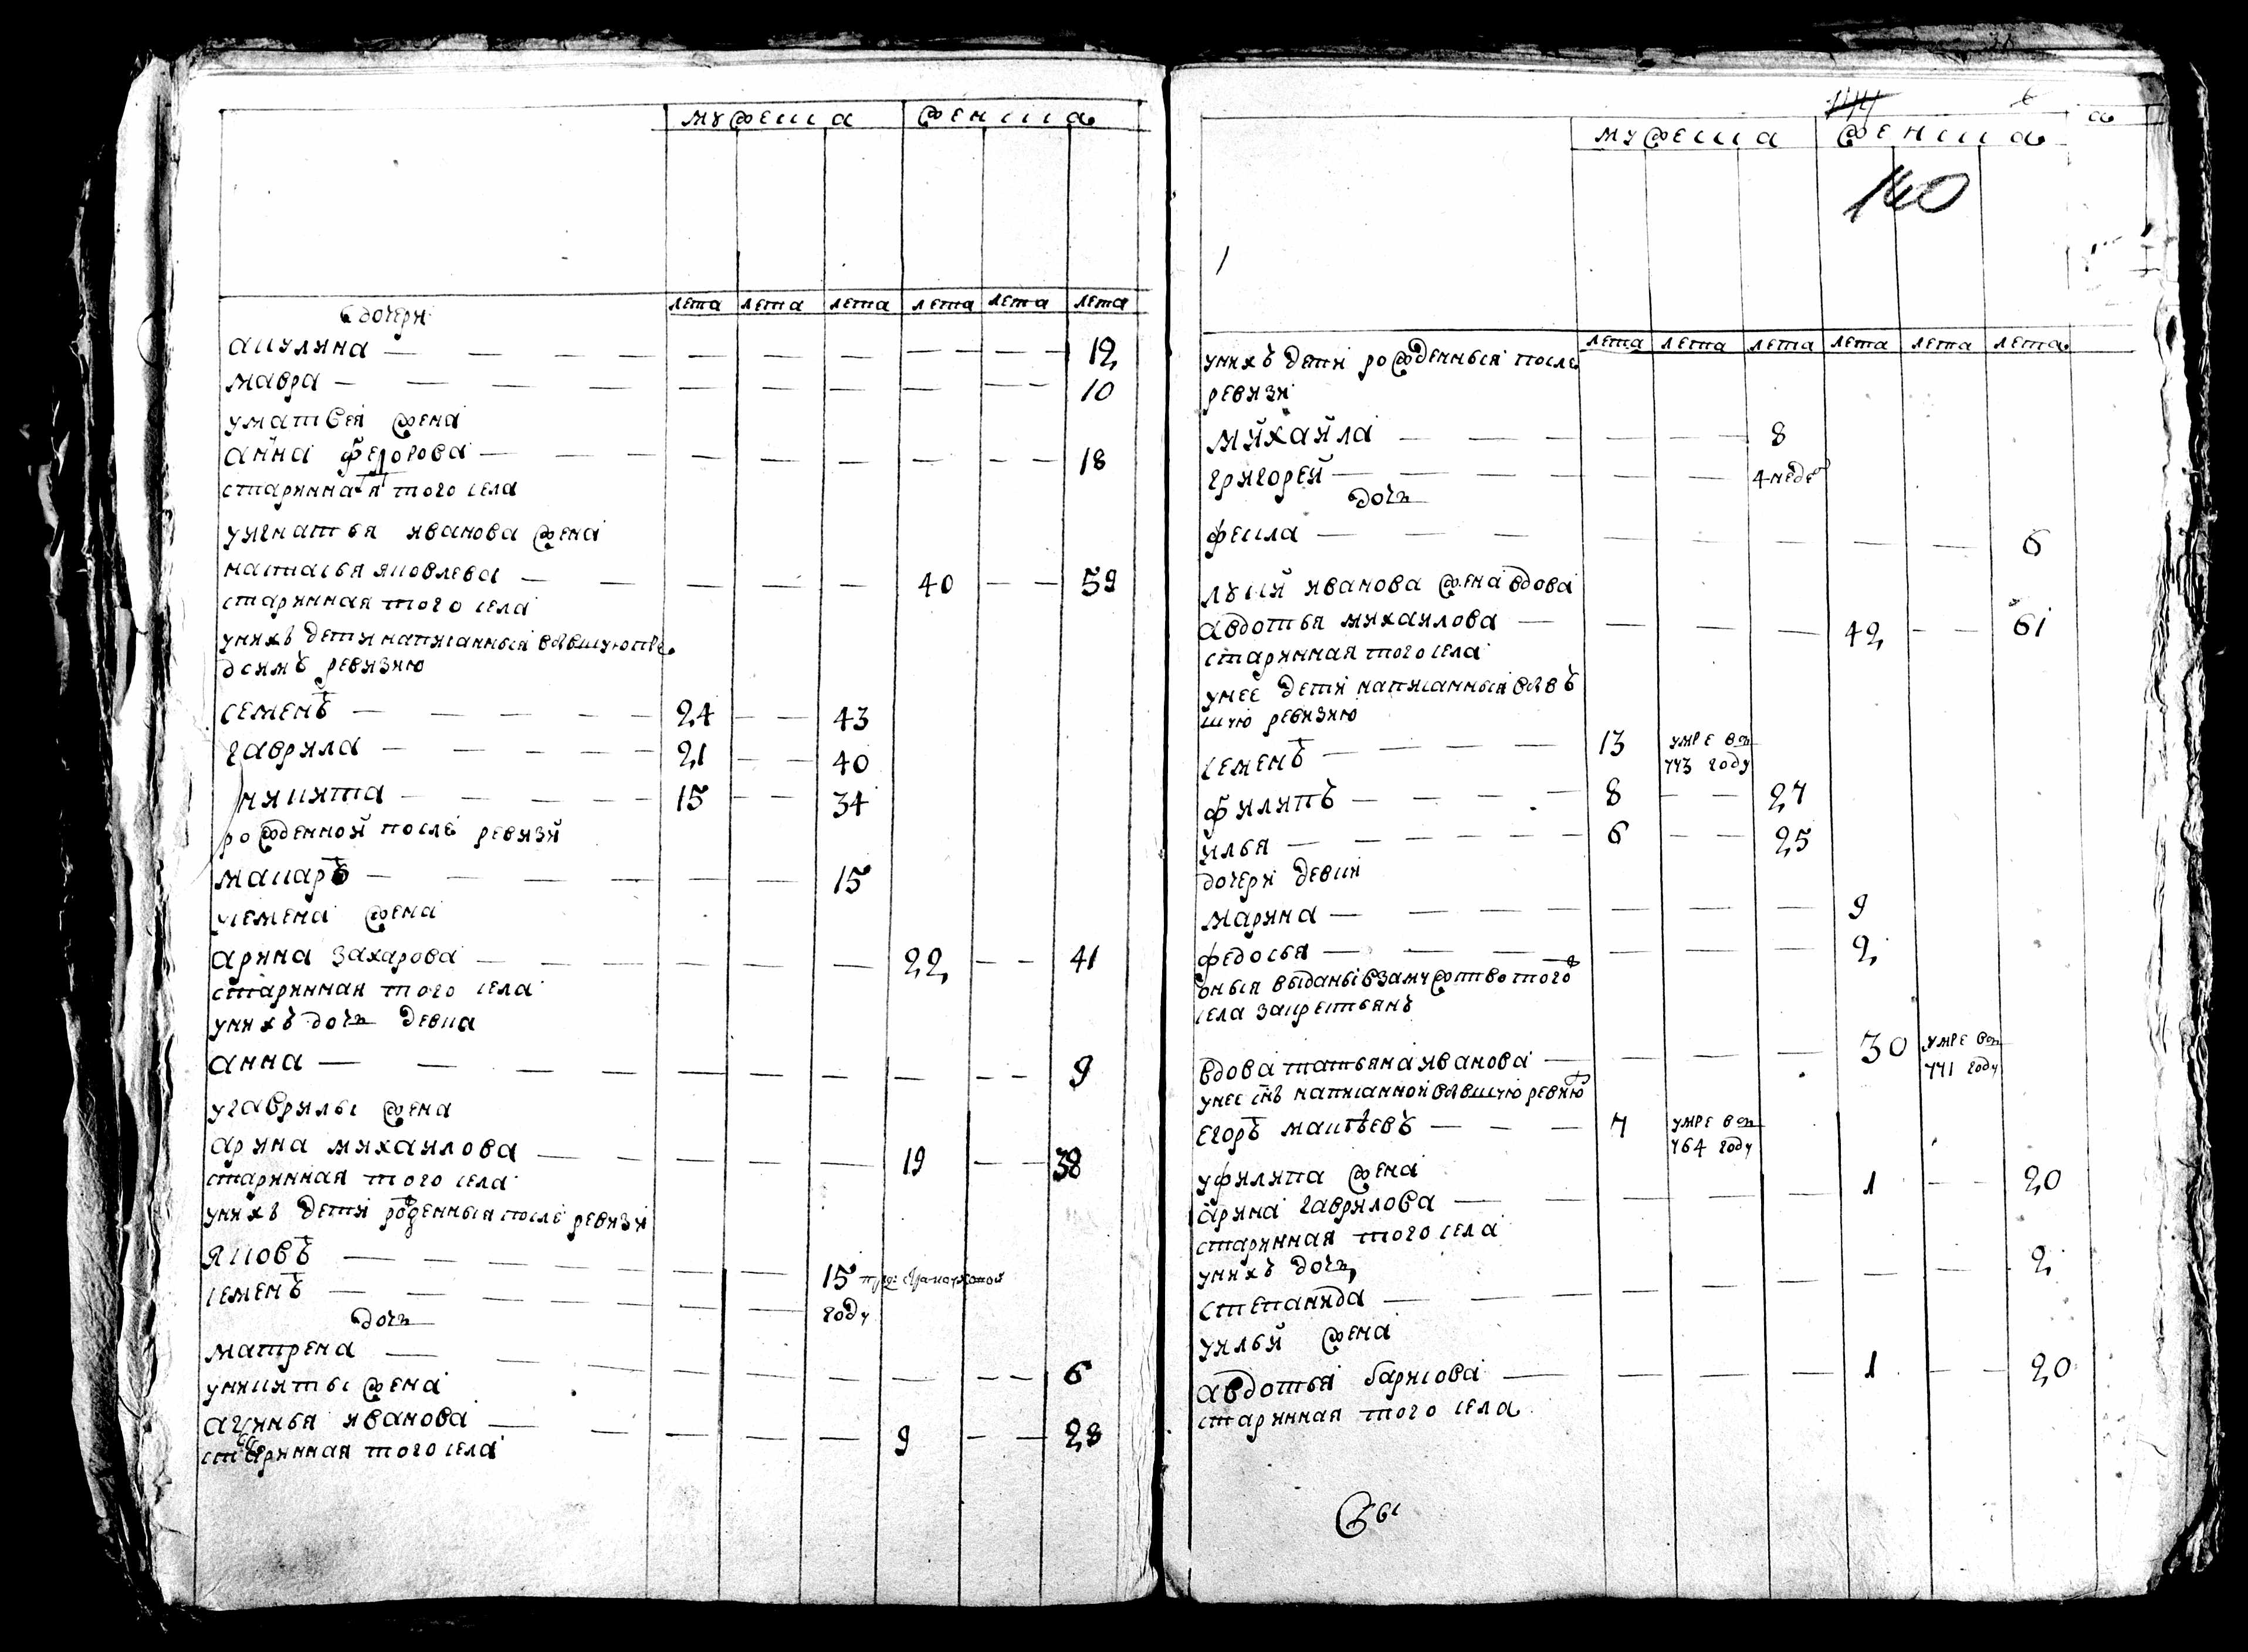 мужеска женска
лета лета лета лета лета лета
дочери
акулина — — — — — — — 12
мавра — — — — — — — 10
уматвея жена
анна федотова — — — — — — — 18
стариннаѧ того села
уигнатья иванова жена
настасья яковлева — — — — 40 — — 59
старинная того села
унихъ дети написанныя вбывшую пре
дсимъ ревизию
семенъ — — — — — 24 — — 43
гаврила — — — — 21 — — 40
никита — — — — 15 — — 34
рожденной после ревизи
макаръ — — — — — — 15
усемена жена
арина захарова — — — — — — 22 — — 41
старинная того села
унихъ дочь девка
анна — — — — — — — — — 9
угаврилы жена
арина михаилова — — — — — 19 — — 38
старинная того села
унихъ дети рожденныя после ревизи
яковъ — — — — — — 15
семенъ — — — — — — году
дочь
матрена — — — — — — — — 6
уникиты жена
агинья иванова — — — — — 9 — — 28
старинная того села
140
мужеска женска
лета лета лета лета лета лета
унихъ дети рожденныя после
ревизи
михаила — — — — — 8
григорей — — — — — 4 неде
дочь
фекла — — — — — — — — 6
луки иванова жена вдова
авдотья михаилова — — — — 42 — — 61
старинная того села
унее дети написанныя вбыв
шую ревизию
семенъ — — — — 13 умре въ
773 году
филипъ — — — — 8 — — 27
илья — — — — — 6 — — 25
дочери девки
марина — — — — — — — 9
федосья — — — — — — — 2
оныя выданы взамужство того
села закрестьянъ
вдова татьяна иванова — — — — 30 умре въ
771 году
унее снъ написанной вбывшую ревизию
егоръ матвѣевъ — — — 7 умре въ
764 году
уфилипа жена
арина гаврилова — — — — — 1 — — 20
старинная того села
унихъ дочь 2
степанида — — — — — — —
уильи жена
авдотья барисова — — — — 1 — — 20
старинная того села